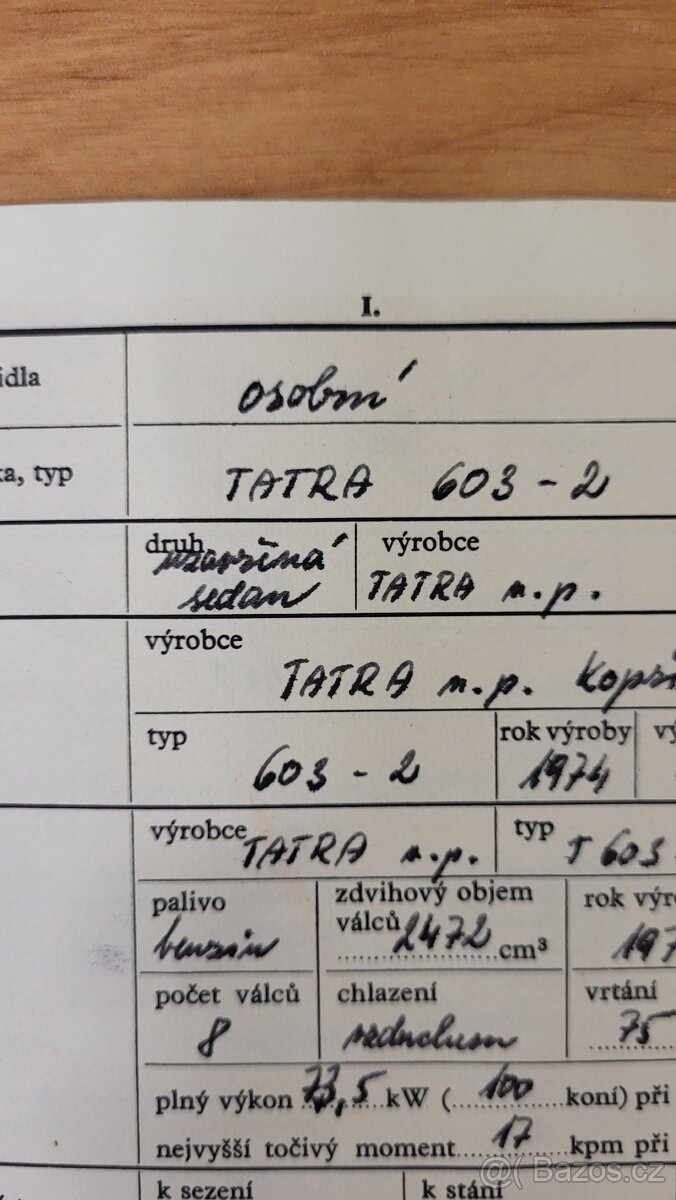 I.
idla
osobní
ka, typ
TATRA 603 - 2
druh
uzavřená
sedan
výrobce
TATRA n.p.
výrobce
TATRA n.p. Kopři
typ
603 - 2
rok výroby
1974
vý
výrobce
TATRA n.p.
typ
T 603
palivo
benzin
zdvihový objem
válců 2472 cm³
rok výro
197
počet válců
8
chlazení
vzduchem
vrtání
75
plný výkon 73,5 kW ( 100 koní) při
nejvyšší točivý moment 17 kpm při
k sezení
k stání
@( Bazos.cz